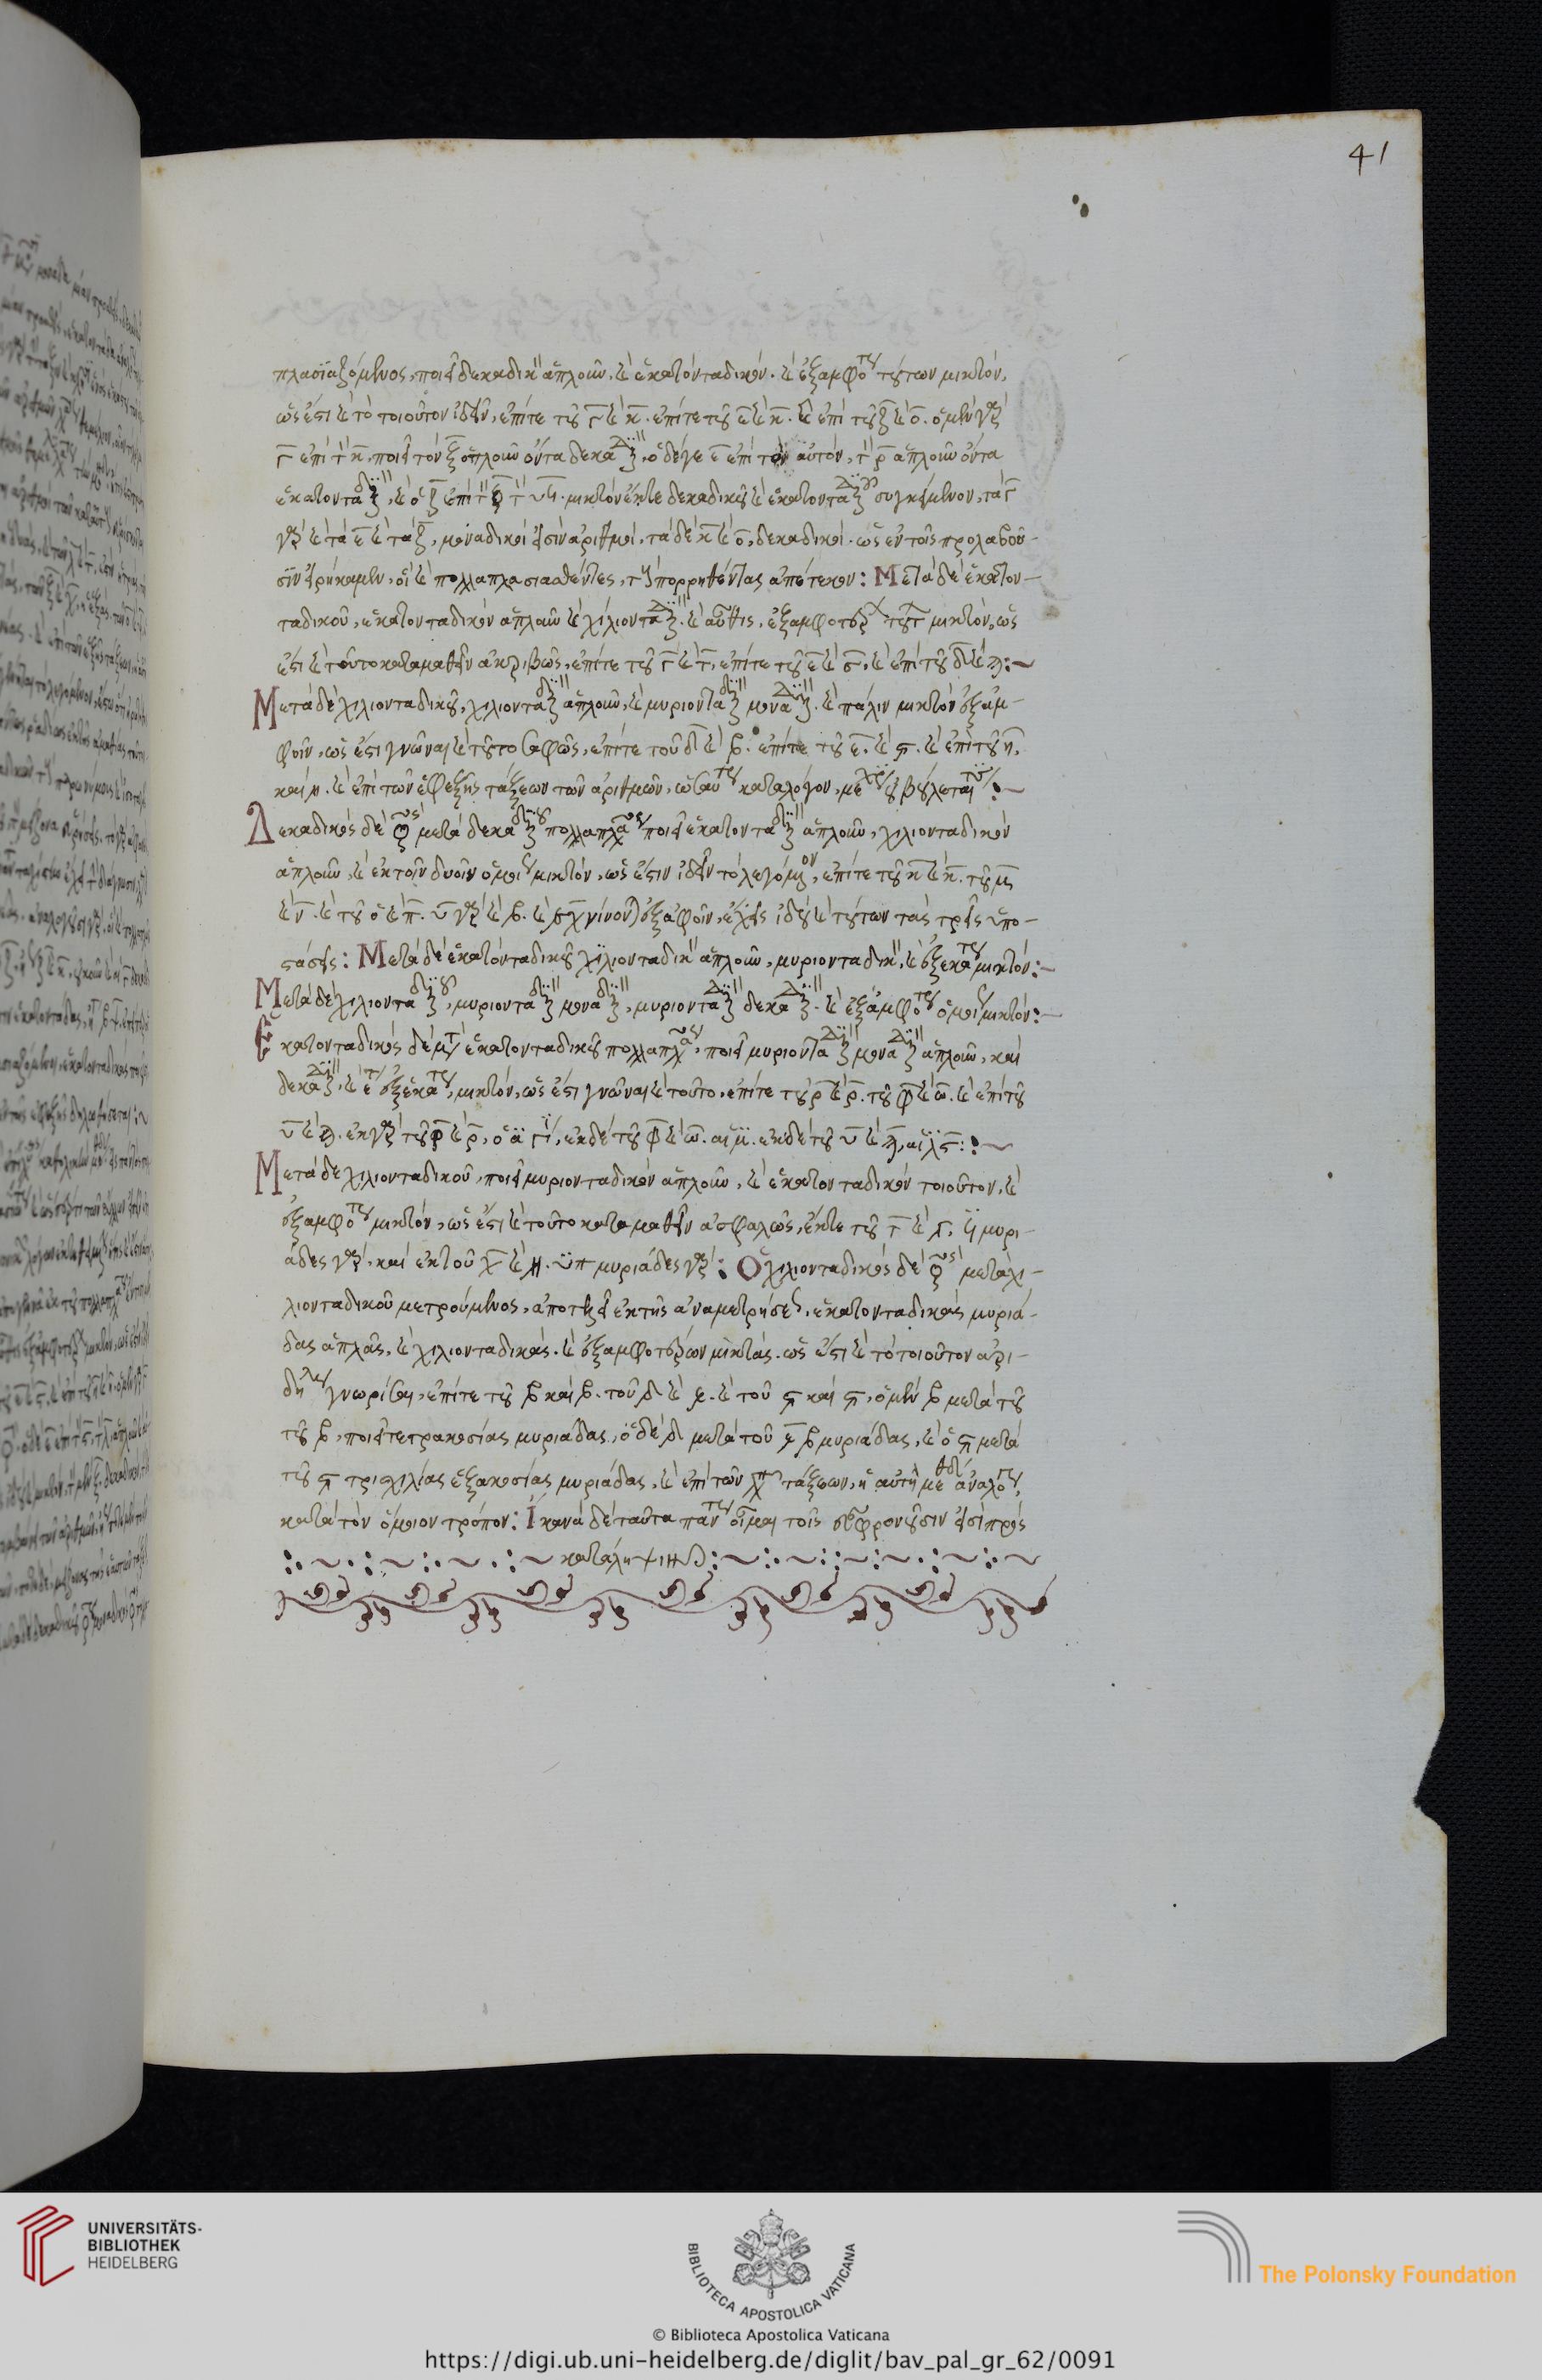 41
πλασιαζόμενος, ποιεῖ δεκαδικὸν ἁπλοῦν, καὶ ἑκατονταδικόν. καὶ ἐξ ἀμφοτέρων τούτων μικτόν,
ὡς ἔστι καὶ τὸ τοιοῦτον ἰδεῖν, ἐπί τε τοῦ γ καὶ κ. ἐπί τε τοῦ ε καὶ κ. καὶ ἐπὶ τοῦ ζ καὶ ο. ὁ μὲν γὰρ
γ ἐπὶ τὸν κ, ποιεῖ τὸν ξ ἁπλοῦν ὄντα δεκαδικόν, ὁ δέ γε ε ἐπὶ τὸν αὐτόν, τὸν ρ ἁπλοῦν ὄντα
ἑκατονταδικόν, καὶ ὁ ζ ἐπὶ τὸν ο τὸν υϟ. μικτὸν ἔκ τε δεκαδικοῦ καὶ ἑκατονταδικοῦ συγκείμενον, τὰ γ
γὰρ καὶ τὰ ε καὶ τὰ ζ, μοναδικοί εἰσιν ἀριθμοί, τὰ δὲ κ καὶ ο, δεκαδικοί. ὡς ἐν τοῖς προλαβοῦ-
σιν εἰρήκαμεν, οἳ καὶ πολλαπλασιασθέντες, τοὺς ἀπορρηθέντας ἀπέτεκον: Μετὰ δὲ ἑκατον-
ταδικοῦ, ἑκατονταδικὸν ἁπλοῦν καὶ χιλιονταδικόν. καὶ αὖθις, ἐξ ἀμφοτέρων τούτων μικτόν, ὡς
ἔστι καὶ τοῦτο καταμαθεῖν ἀκριβῶς, ἐπί τε τοῦ γ καὶ τ, ἐπί τε τοῦ ε καὶ σ, καὶ ἐπὶ τοῦ δ καὶ ϡ:~
Μετὰ δὲ χιλιονταδικοῦ, χιλιονταδικὸν ἁπλοῦν, καὶ μυριονταδικὸν μοναδικόν. καὶ πάλιν μικτὸν ἐξ ἀμ-
φοῖν, ὡς ἔστι γνῶναι καὶ τοῦτο σαφῶς, ἐπί τε τοῦ δ καὶ β. ἐπί τε τοῦ ε. καὶ ϛ. καὶ ἐπὶ τοῦ η,
καὶ η. καὶ ἐπὶ τῶν ἐφεξῆς τάξεων τῶν ἀριθμῶν, ὡσαύτως κατὰ λόγον, μέχρις οὗ βούλεταί τις:~
Δεκαδικὸς δὲ ἀριθμὸς μετὰ δεκαδικοῦ πολλαπλασιασθεὶς ποιεῖ ἑκατονταδικὸν ἁπλοῦν, χιλιονταδικὸν
ἁπλοῦν, καὶ ἐκ τοῖν δυοῖν ὁμοίως μικτόν, ὡς ἔστιν ἰδεῖν τὸ λεγόμενον, ἐπί τε τοῦ κ καὶ κ. τοῦ μ
καὶ ν. καὶ τοῦ ο καὶ π. υ γὰρ καὶ β. καὶ εχ γίνονται ἐξ ἀμφοῖν, ἔχεις ἰδοὺ καὶ τούτων τὰς τρεῖς ὑπο-
στάσεις: Μετὰ δὲ ἑκατονταδικοῦ χιλιονταδικὸν ἁπλοῦν, μυριονταδικόν, καὶ ἐξ ἑκατέρων μικτόν:~
Μετὰ δὲ χιλιονταδικοῦ, μυριονταδικὸν μοναδικόν, μυριονταδικὸν δεκαδικόν. καὶ ἐξ ἀμφοτέρων ὁμοίως μικτόν:~
Ἑκατονταδικὸς δὲ μετὰ ἑκατονταδικοῦ πολλαπλασιασθείς, ποιεῖ μυριονταδικὸν μοναδικὸν ἁπλοῦν, καὶ
δεκαδικόν, καὶ ἐξ ἑκατέρων, μικτόν, ὡς ἔστι γνῶναι καὶ τοῦτο, ἐπί τε τοῦ ρ καὶ ρ. τοῦ φ καὶ ω. καὶ ἐπὶ τοῦ
υ καὶ ϡ. ἐκ γὰρ τοῦ ρ καὶ ρ, ὁ α γίνεται, ἐκ δὲ τοῦ φ καὶ ω. αἱ μ. ἐκ δὲ τοῦ υ καὶ ϡ, αἱ λϛ:~
Μετὰ δὲ χιλιονταδικοῦ, ποιεῖ μυριονταδικὸν ἁπλοῦν, καὶ ἑκατονταδικὸν τοιοῦτον, καὶ
ἐξ ἀμφοτέρων μικτόν, ὡς ἔστι καὶ τοῦτο καταμαθεῖν ἀσφαλῶς, ἔκ τε τοῦ τ καὶ γ, ϟ μυρι-
άδες γάρ. καὶ ἐκ τοῦ χ καὶ η. υπ μυριάδες γάρ: Ὁ χιλιονταδικὸς δὲ ἀριθμὸς μετὰ χι-
λιονταδικοῦ μετρούμενος, ἀποτίκτει ἐκ τῆς ἀναμετρήσεως, ἑκατονταδικὰς μυριά-
δας ἁπλᾶς, καὶ χιλιονταδικάς. καὶ ἐξ ἀμφοτέρων μικτάς. ὡς ἔστι καὶ τὸ τοιοῦτον ἀρι-
δήλως γνωρίσαι, ἐπί τε τοῦ β καὶ β. τοῦ δ καὶ ε. καὶ τοῦ ϛ καὶ ϛ, ὁ μὲν β μετὰ τοῦ
τοῦ β, ποιεῖ τετρακοσίας μυριάδας, ὁ δὲ δ μετὰ τοῦ ε β μυριάδας, καὶ ὁ ϛ μετὰ
τοῦ ϛ τρισχιλίας ἑξακοσίας μυριάδας, καὶ ἐπὶ τῶν λοιπῶν τάξεων, ἡ αὐτὴ μέθοδος ἀναλόγως
κατὰ τὸν ὅμοιον τρόπον: Ἱκανὰ δὲ ταῦτα πάντως οἶμαι τοῖς σωφρονοῦσιν εἰσὶ πρὸς
κατάληψιν
UNIVERSITÄTS-
BIBLIOTHEK
HEIDELBERG
BIBLIOTECA APOSTOLICA VATICANA
The Polonsky Foundation
© Biblioteca Apostolica Vaticana
https://digi.ub.uni-heidelberg.de/diglit/bav_pal_gr_62/0091